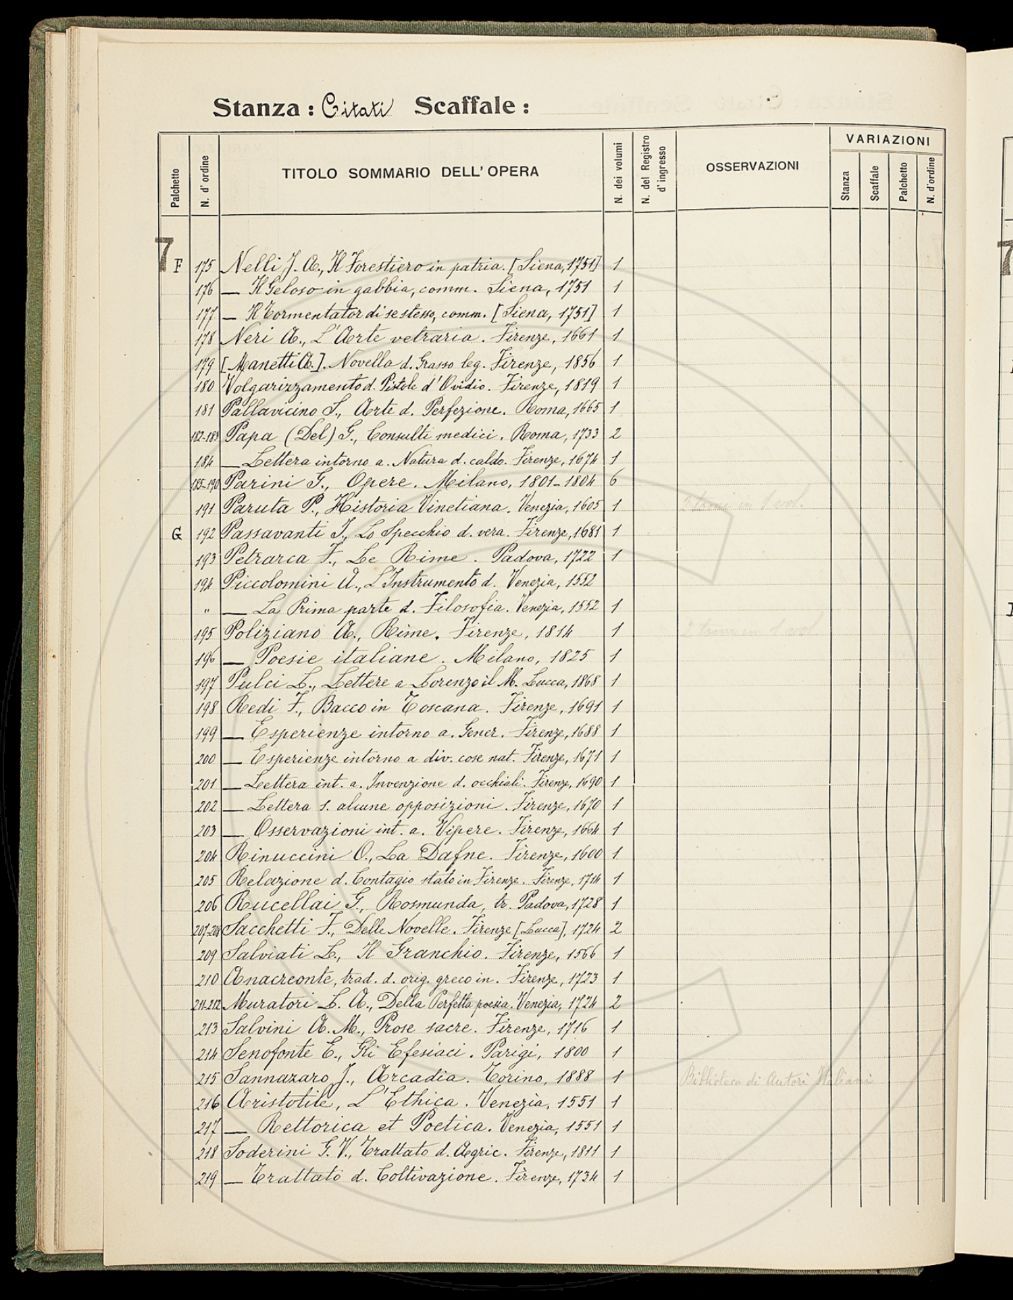 Stanza: Citati Scaffale:
Palchetto N. d'ordine TITOLO SOMMARIO DELL'OPERA N. dei volumi N. del Registro d'ingresso OSSERVAZIONI VARIAZIONI
Stanza Scaffale Palchetto N. d'ordine
7 F 175 Nelli J. A., Il Forestiero in patria. [Siena, 1751] 1
176 — Il Geloso in gabbia, comm. Siena, 1751 1
177 — Il Tormentator di se stesso, comm. [Siena, 1751] 1
178 Neri A., L'Arte vetraria. Firenze, 1661 1
179 [Manetti A.]. Novella d. Grasso leg. Firenze, 1856 1
180 Volgarizzamento d. Pistole d'Ovidio. Firenze, 1819 1
181 Pallavicino S., Arte d. Perfezione. Roma, 1665 1
182-183 Papa (Del) G., Consulti medici. Roma, 1733 2
184 — Lettera intorno a. Natura d. caldo. Firenze, 1674 1
185-190 Parini G., Opere. Milano, 1801-1804 6
191 Paruta P., Historia Vinetiana. Venezia, 1605 1 2 tomi in 1 vol.
G 192 Passavanti J., Lo Specchio d. vera. Firenze, 1681 1
193 Petrarca F., Le Rime. Padova, 1722 1
194 Piccolomini A., L'Instrumento d. Venezia, 1552
" — La Prima parte d. Filosofia. Venezia, 1552 1
195 Poliziano A., Rime. Firenze, 1814 1 2 tomi in 1 vol.
196 — Poesie italiane. Milano, 1825 1
197 Pulci L., Lettere a Lorenzo il M. Lucca, 1868 1
198 Redi F., Bacco in Toscana. Firenze, 1691 1
199 — Esperienze intorno a. Gener. Firenze, 1688 1
200 — Esperienze intorno a div. cose nat. Firenze, 1671 1
201 — Lettera int. a. Invenzione d. occhiali. Firenze, 1690 1
202 — Lettera s. alcune opposizioni. Firenze, 1670 1
203 — Osservazioni int. a. Vipere. Firenze, 1664 1
204 Rinuccini O., La Dafne. Firenze, 1600 1
205 Relazione d. Contagio stato in Firenze. Firenze, 1714 1
206 Rucellai G., Rosmunda, tr. Padova, 1728 1
207-208 Sacchetti F., Delle Novelle. Firenze [Lucca], 1724 2
209 Salviati L., Il Granchio. Firenze, 1566 1
210 Anacreonte, trad. d. orig. greco in. Firenze, 1723 1
211-212 Muratori L. A., Della Perfetta poesia. Venezia, 1724 2
213 Salvini A. M., Prose sacre. Firenze, 1716 1
214 Senofonte E., Gli Efesiaci. Parigi, 1800 1
215 Sannazaro J., Arcadia. Torino, 1888 1 Biblioteca di Autori Italiani
216 Aristotile, L'Ethica. Venezia, 1551 1
217 — Rettorica et Poetica. Venezia, 1551 1
218 Soderini G. V., Trattato d. Agric. Firenze, 1811 1
219 — Trattato d. Coltivazione. Firenze, 1734 1
7